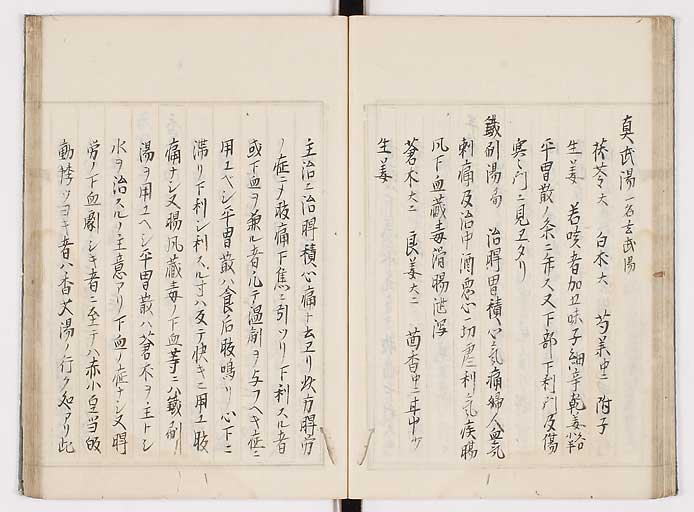 真武湯 一名玄武湯
茯苓大 白朮大 芍薬中ニ 附子
生姜 若咳者加五味子細辛乾姜
平胃散ノ条ニ弁ス又下部下利門及傷
寒之門ニ見ヱタリ
鐵刷湯局 治脾胃積冷心気痛婦人血気
刺痛及治中酒悪心一切瘧利気疾腸
風下血蔵毒滑腸泄瀉
蒼朮大ニ 良姜大ニ 茴香中ニ 甘中ケ
生姜
主治ニ治脾積心痛ナトヱリ此方脾労
ノ症ニテ腹痛下焦ニ引ツリ下利スル者
或下血ヲ兼ル者凡テ温剤ヲ与フヘキ症ニ
用ユヘシ平胃散ハ食后腹鳴リ心下ニ
滞リ下利シ利スル寸ハ反テ快キニ用ユ腹
痛ナシ又腸風蔵毒ノ下血等ニハ鐵刷
湯ヲ用ユヘシ平胃散ハ蒼朮ヲ主トシ
水ヲ治スルノ主意アリ下血ノ症ナシ又脾
労ノ下血劇シキ者ニ至テハ赤小豆当皈
動悸ツヨキ者ハ香艾湯ノ行ク処アリ此